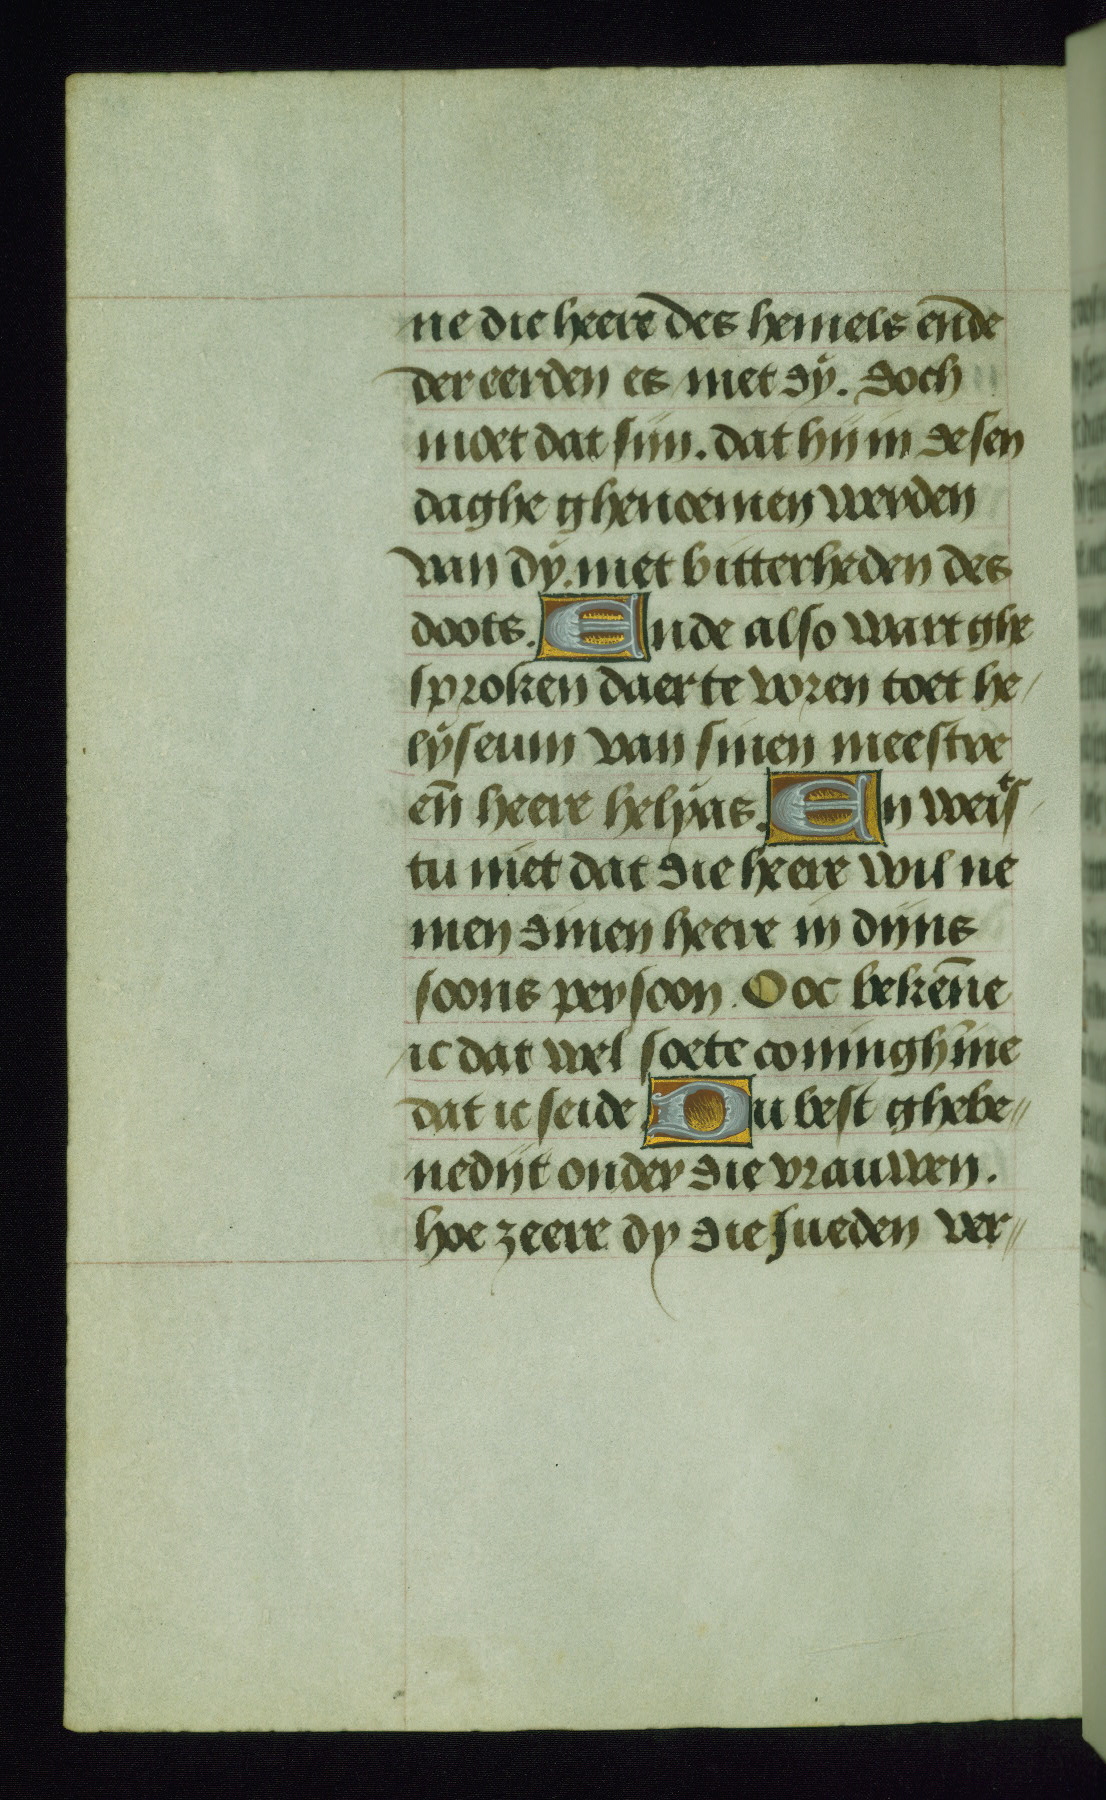 ne die heere des hemels ende
der eerden es met dÿ. doch
moet dat siin. dat hii in desen
daghe ghenoemen werden
van dÿ. met bitterheden des
doots. Ende also wart ghe
sproken daer te voren toet he/
lÿseum van sinen meestre
en̄ heere helÿas. En weis
tu niet dat die heere wil ne
men dinen heere in diins
soons persoon. Ooc bekēne
ic dat wel soete coninghīne
dat ic seide. Du best ghebe//
nediit onder die vrauwen.
hoe zeere dy die Jueden ver//